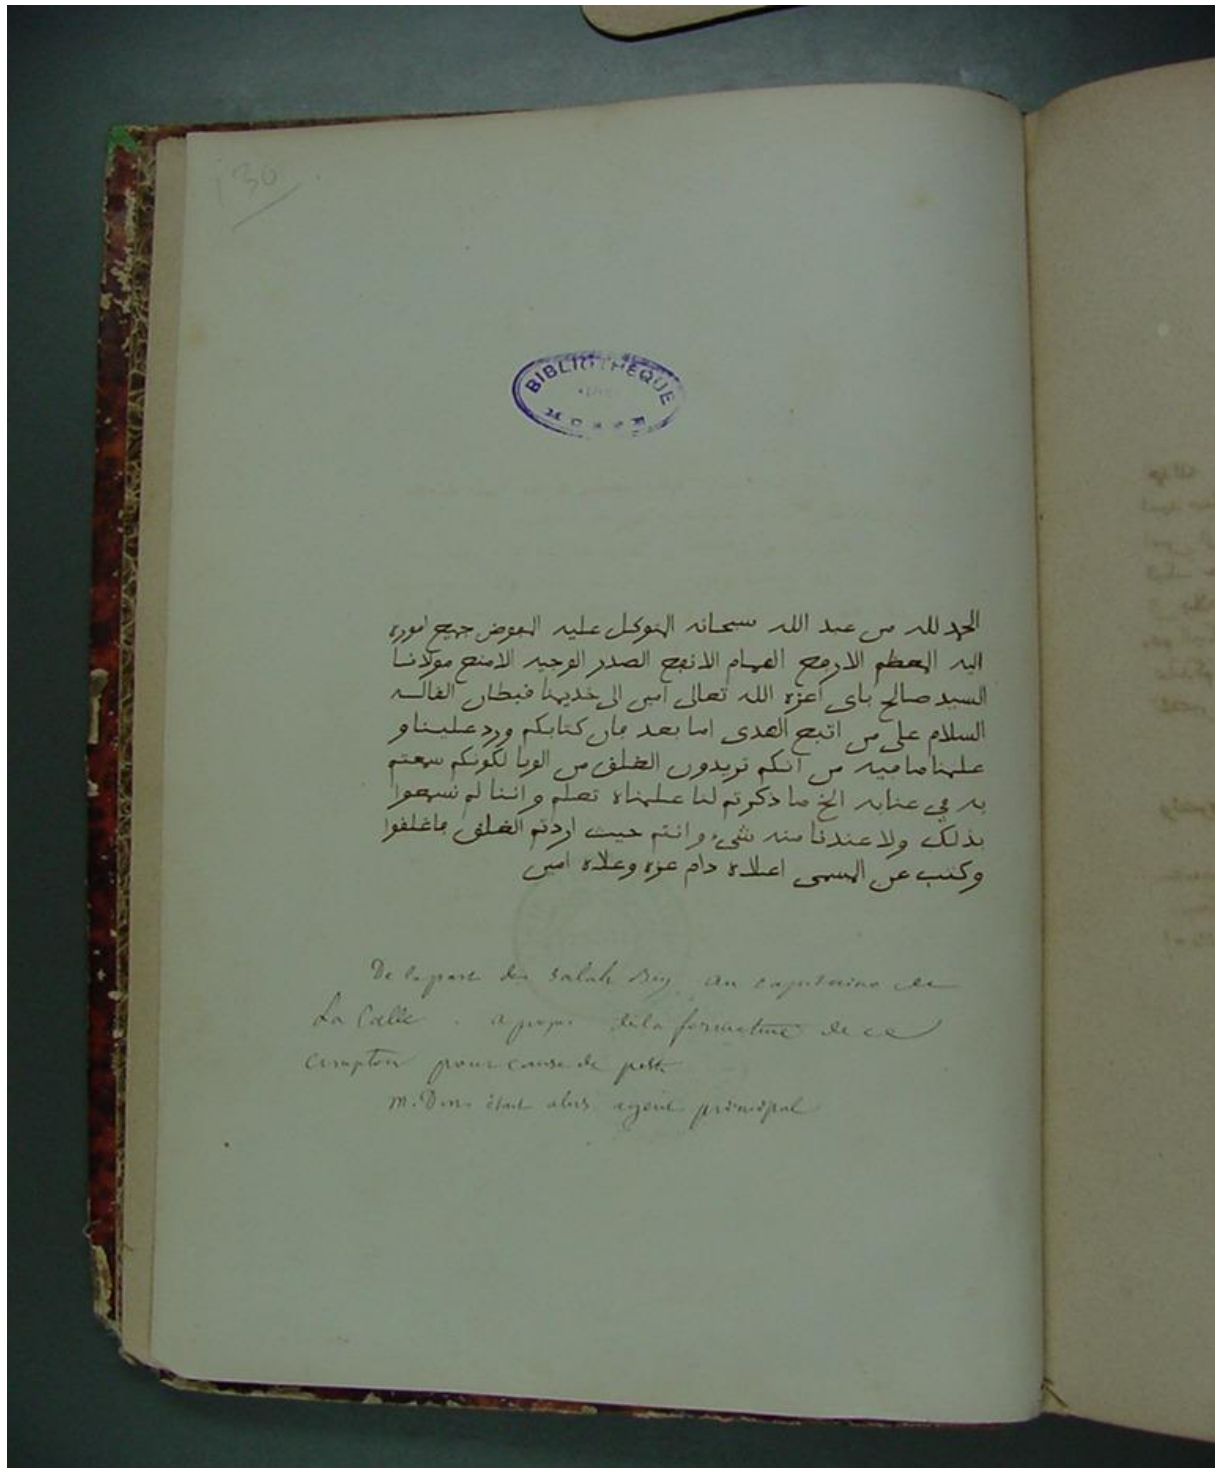 130
BIBLIOTHEQUE
الحمد لله من عبد الله سبحانه المتوكل عليه المفوض جميع اموره
اليه المعظم الارفع الهمام الانفع الصدر الوجيه الامنع مولانا
السيد صالح باي اعزه الله تعالى امين الى خديمنا قبطان القالـة
السلام على من اتبع الهدى اما بعد فان كتابكم ورد علينا و
علمنا ما فيه من انكم تريدون الغلق من الوبا لكونكم سمعتم
به في عنابه الخ ما ذكرتم لنا علمناه تعلم و اننا لم نسمعوا
بذلك ولا عندنا منه شيء و انتم حيث اردتم الغلق فاغلقوا
وكتب عن المسمى اعلاه دام عزه وعلاه امين
De la part de Salah Bey au capitaine de
La Calle. a propos de la fermeture de ce
comptoir pour cause de peste
M. était alors agent principal